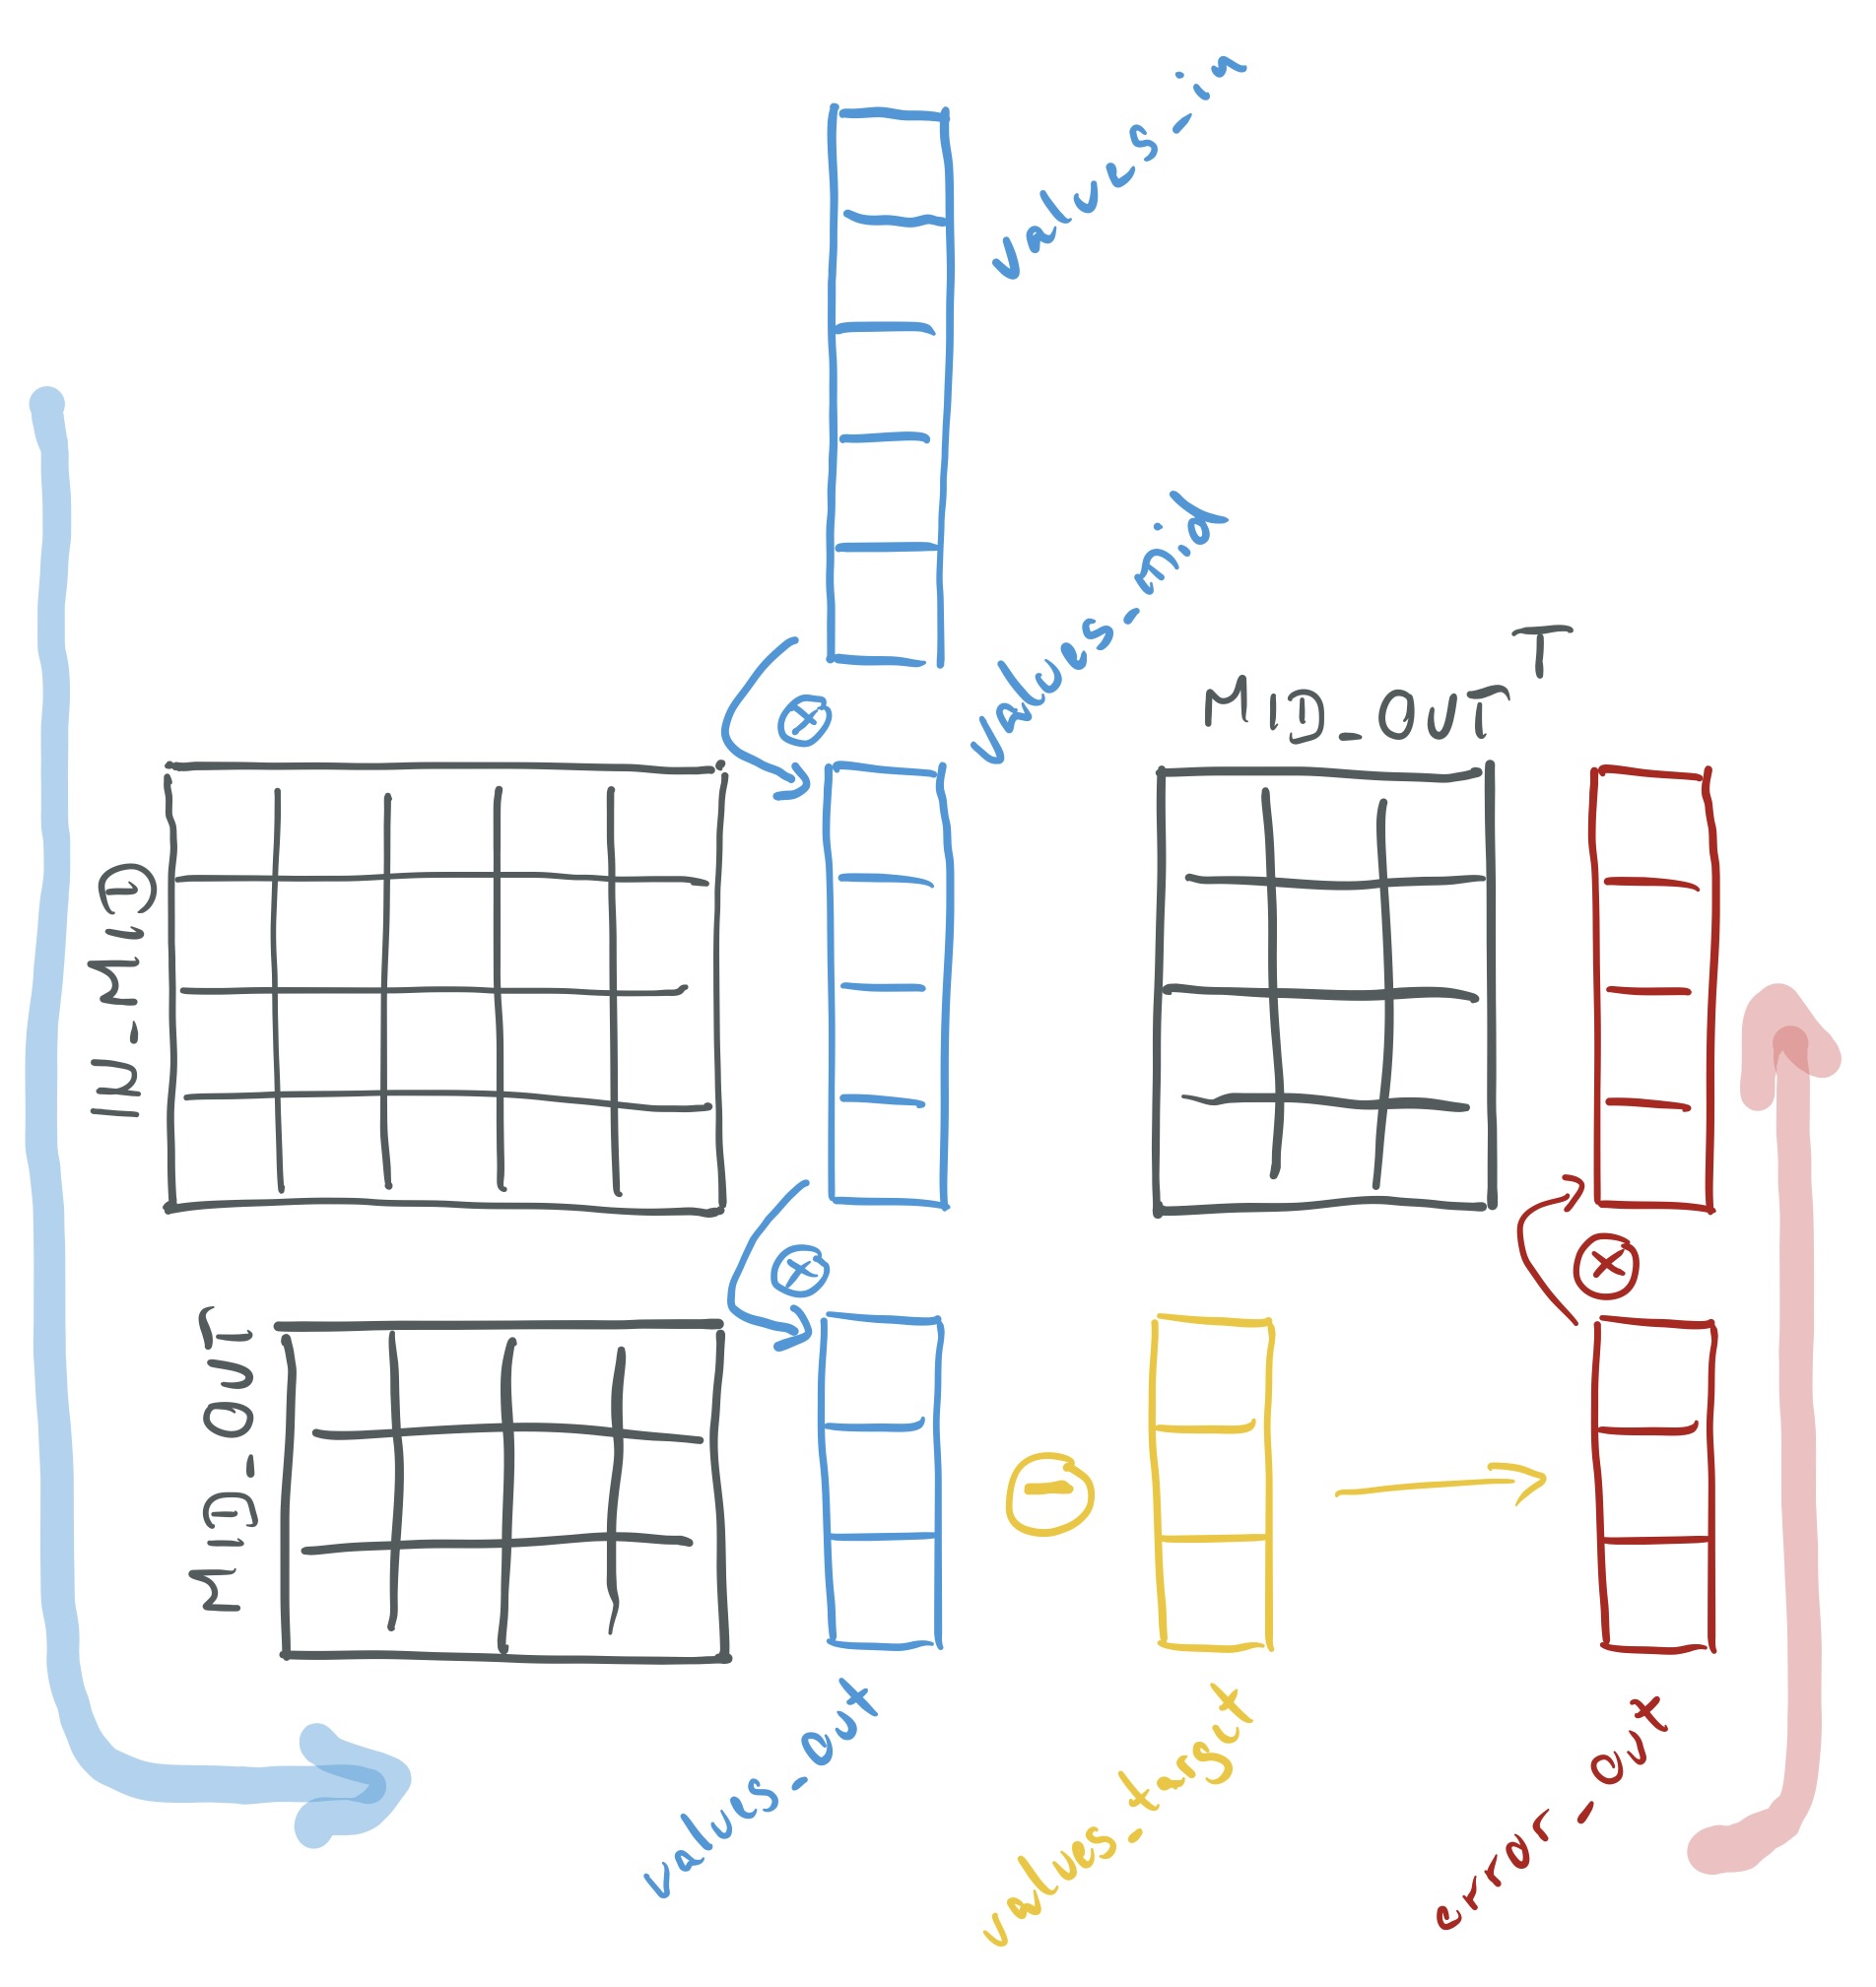 values_in
values_mid
MID_OUT T
IN_MID
MID_OUT
values_out
values_target
error_out